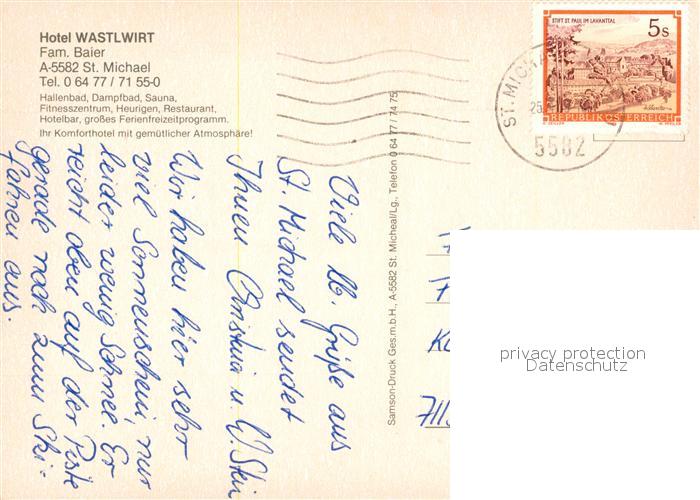 Hotel WASTLWIRT
Fam. Baier
A-5582 St. Michael
Tel. 0 64 77 / 71 55-0
Hallenbad, Dampfbad, Sauna,
Fitnesszentrum, Heurigen, Restaurant,
Hotelbar, großes Ferienfreizeitprogramm.
Ihr Komforthotel mit gemütlicher Atmosphäre!
STIFT ST. PAUL IM LAVANTTAL
5s
REPUBLIK ÖSTERREICH
ST. MICHA
25.
5582
Samson-Druck Ges.m.b.H., A-5582 St. Micheal/Lg., Telefon 0 64 77 / 74 75
Viele lb. Grüße aus
St. Michael sendet
Ihnen Christina u.
Wir haben hier sehr
viel Sonnenschein, nur
leider wenig Schnee. Er
reicht oben auf der Piste
gerade noch zum Ski-
fahren aus.
privacy protection
Datenschutz